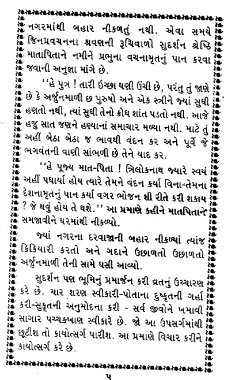 નગરમાંથી બહાર નીકળતું નથી. એવા સમયે
જિનપ્રવચનના શ્રવણની રૂચિવાળો સુદર્શન શ્રેષ્ઠિ
માતાપિતાને નમીને પ્રભુના વચનામૃતનું પાન કરવા
જવાની અનુજ્ઞા માંગે છે.
“હે પુત્ર ! તારી ઇચ્છા ઘણી ઉંચી છે, પરંતુ તું જાણે
છે કે અર્જુનમાળી છ પુરુષો અને એક સ્ત્રીને જ્યાં સુધી
હણતો નથી, ત્યાં સુધી તેનો ક્રોધ શાંત પડતો નથી. આજે
હજુ સાત જણને હણ્યાનાં સમાચાર મળ્યા નથી. માટે તું
અહીં બેઠા બેઠા જ ભાવથી વંદન કર અને પૂર્વે જે
ભગવંતની વાણી સાંભળી છે તેને યાદ કર.
“હે પૂજ્ય માત-પિતા ! ત્રિલોકનાથ જ્યારે સ્વયં
અહીં પધાર્યા હોય ત્યારે તેમને વંદન કર્યા વિના-તેમના
દેશનામૃતનું પાન કર્યા વગર ભોજન શી રીતે કરી શકાય
? જે થવું હોય તે થશે.” આ પ્રમાણે કહીને માતપિતાને
સમજાવીને ઘરમાંથી નીકળ્યો.
જ્યાં નગરના દરવાજાની બહાર નીકળ્યો ત્યાંજ
કિકિયારી કરતો અને ગદાને ઉછાળતો ઉછાળતો
અર્જુનમાળી તેની સામે ધસી આવ્યો.
સુદર્શન પણ ભૂમિનું પ્રમાર્જન કરી વ્રતનું ઉચ્ચારણ
કરે છે. ચાર શરણ સ્વીકારી-પોતાના દુષ્કૃતની ગર્હા
કરી-સુકૃતની અનુમોદના કરી - સર્વ જીવોને ખમાવી
સાગાર પચ્ચકખાણ સ્વીકારે છે. જો આ ઉપસર્ગમાંથી
છૂટીશ તો કાયોત્સર્ગ પારીશ. આ પ્રમાણે વિચાર કરીને
કાયોત્સર્ગ કરે છે.
૫